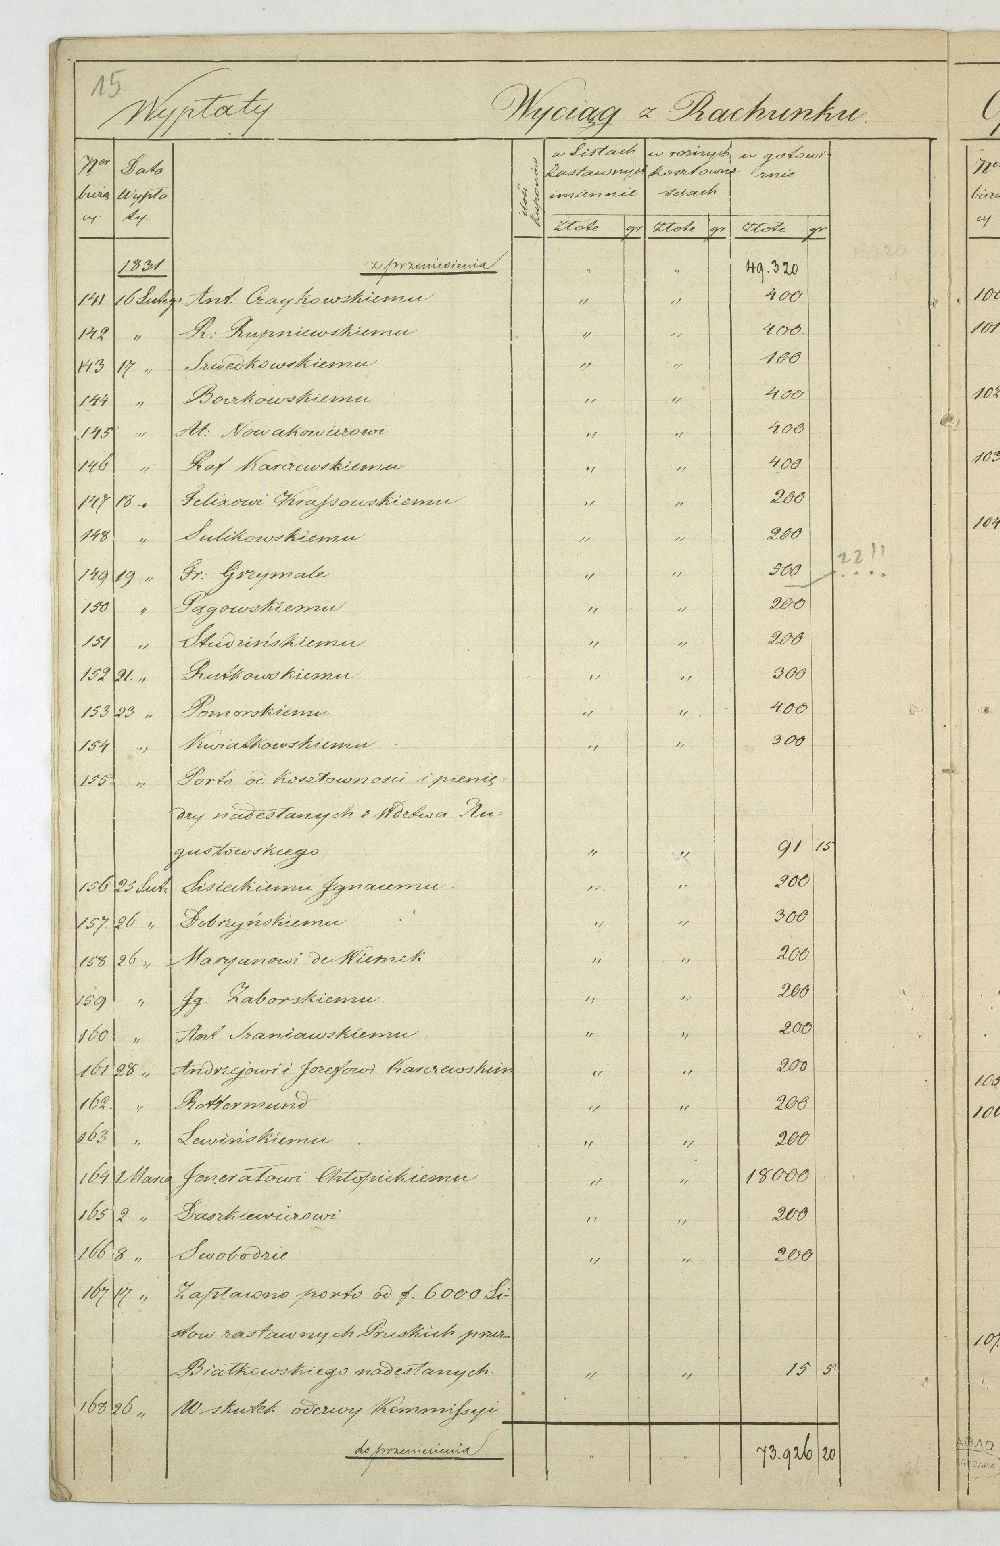 15
Wypłaty Wyciąg z Rachunku.
Ner Data ilość w Listach w różnych w gotowi-
bieżą Wypła kuponów Zastawnych kosztowno źnie
cy ty imiennie ściach
Złote gr Złote gr Złote gr
1831 z przeniesienia " " 49.320
141 16 Lutego Ant. Czaykowskiemu " " 400
142 " R: Rupniewskiemu " " 400
143 17 " Szwedkowskiemu " " 100
144 " Boczkowskiemu " " 400
145 " At: Nowakowiczowi " " 400
146 " Raf Karczewskiemu " " 400
147 18 " Felixowi Krassowskiemu " " 200
148 " Sulikowskiemu " " 200
149 19 " Fr: Grzymale " " 500 22!!
150 " Pagowskiemu " " 200
151 " Studzińskiemu " " 200
152 21 " Rutkowskiemu " " 300
153 23 " Pomorskiemu " " 400
154 " Kwiatkowskiemu " " 300
155 " Porto od kosztowności i pienię-
dzy nadesłanych z Wdztwa Au-
gustowskiego " " 91 15
156 25 Lut. Lisieckiemu Ignacemu " " 200
157. 26 " Dobrzyńskiemu " " 300
158 26 " Maryanowi de Wiemek " " 200
159 " Ig: Zaborskiemu " " 200
160 " Ant Szaniawskiemu " " 200
161 28 " Andrzejowi i Jozefowi Karczewskim " " 200
162. " Rottermund " " 200
163 " Lewińskiemu " " 200
164 1 Marca Jenerałowi Chłopickiemu " " 18000
165 2 " Daszkiewiczowi " " 200
166 8 " Swobodzie " " 200
167 17 " Zapłacono porto od f. 6000 Li-
stow zastawnych Pruskich przez
Białkowskiego nadesłanych. " " 15 5
168 26 " W skutek odezwy Kommissyi
do przeniesienia " " 73.926 20